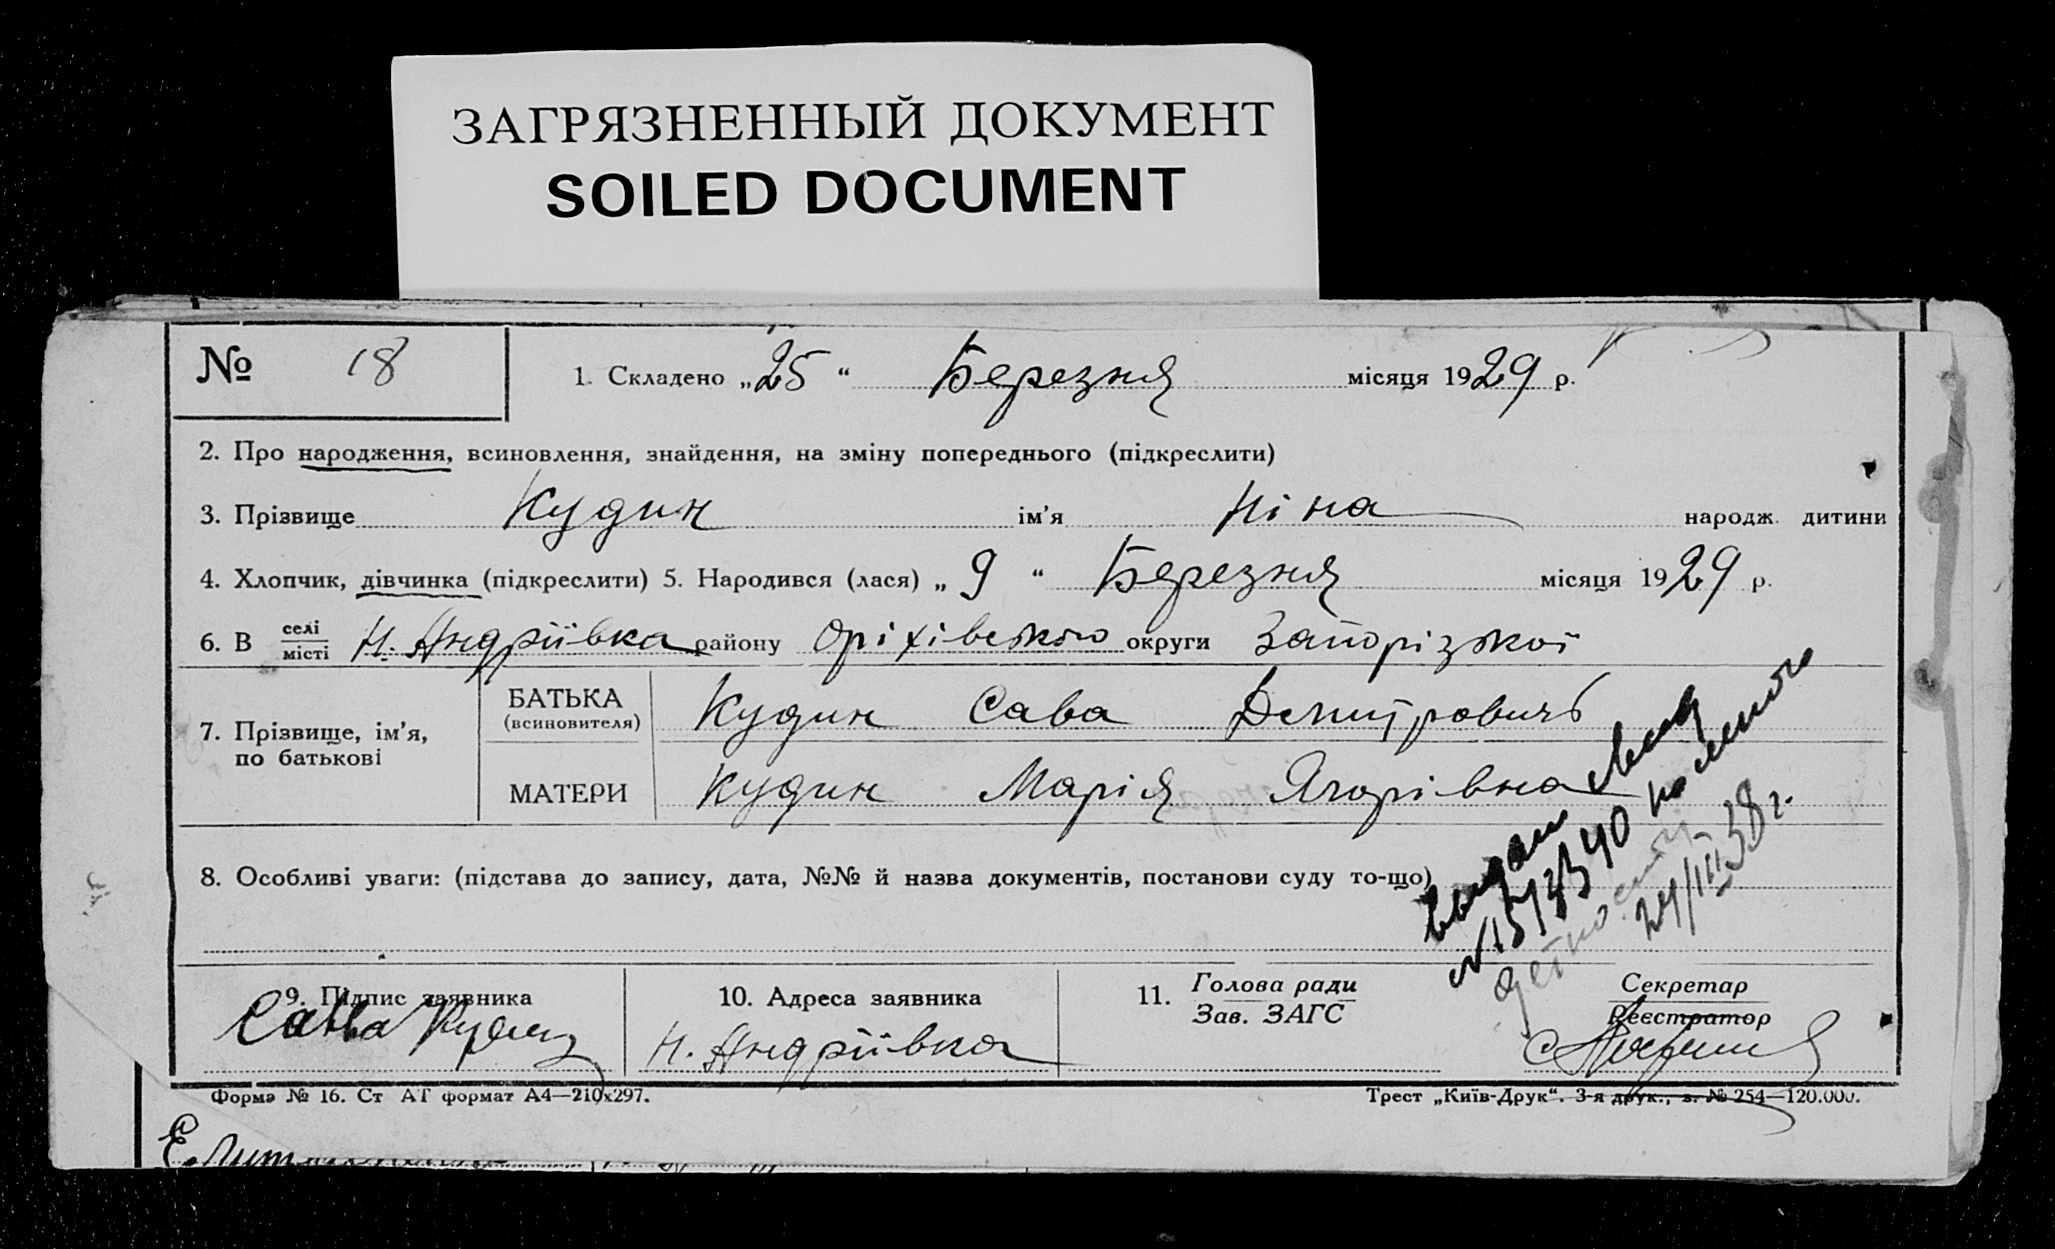 ЗАГРЯЗНЕННЫЙ ДОКУМЕНТ
SOILED DOCUMENT
№ 18
1. Складено „25“ Березня місяця 1929 р.
2. Про народження, всиновлення, знайдення, на зміну попереднього (підкреслити)
3. Прізвище Кудин ім'я Ніна народж. дитини
4. Хлопчик, дівчинка (підкреслити) 5. Народився (лася) „9“ Березня місяця 1929 р.
6. В селі місті Н. Андріївка району Оріхівського округи Запорізької
7. Прізвище, ім'я, по батькові
БАТЬКА (всиновителя) Кудин Сава Дмитровичь
МАТЕРИ Кудин Марія Ягорівна
8. Особливі уваги: (підстава до запису, дата, №№ й назва документів, постанови суду то-що)
выдан
24/III 38 г.
9. Підпис заявника
Савва Кудин
10. Адреса заявника
Н. Андріївка
11. Голова ради
Зав. ЗАГС
Секретар
Реєстратор
Форма № 16. Ст АТ формат А4—210х297.
Трест „Київ-Друк“. 3-я друк., з. № 254—120.000.